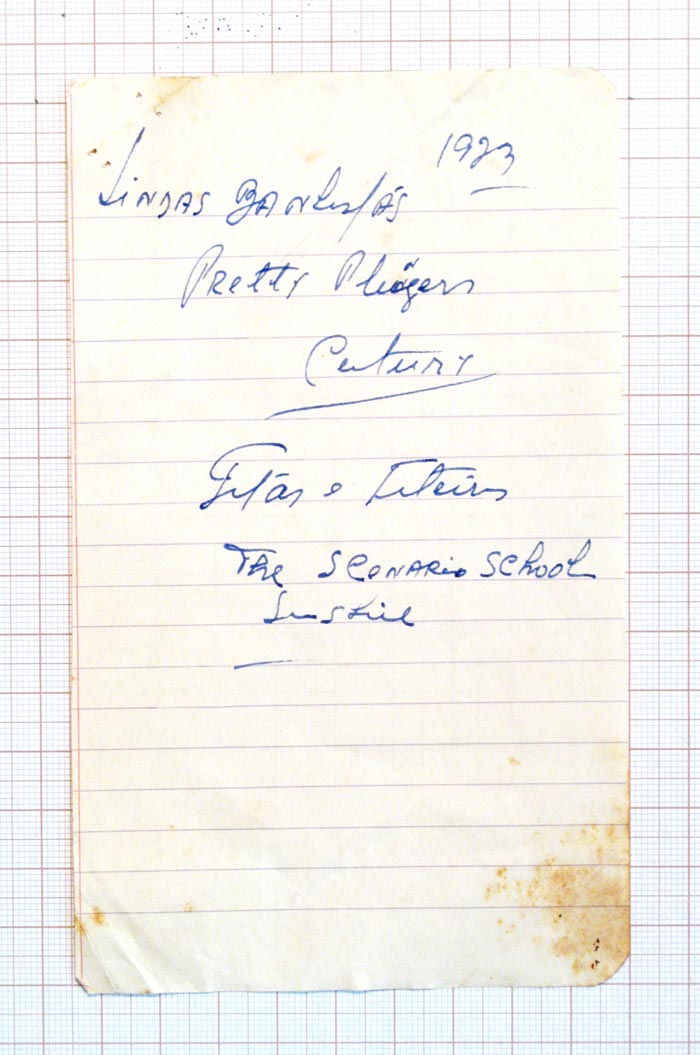 1923
LINDAS BANhistAS
Pretty Plungers
Century
Fitas e Fiteiros
The SCENARio SChOOL
Sunshine